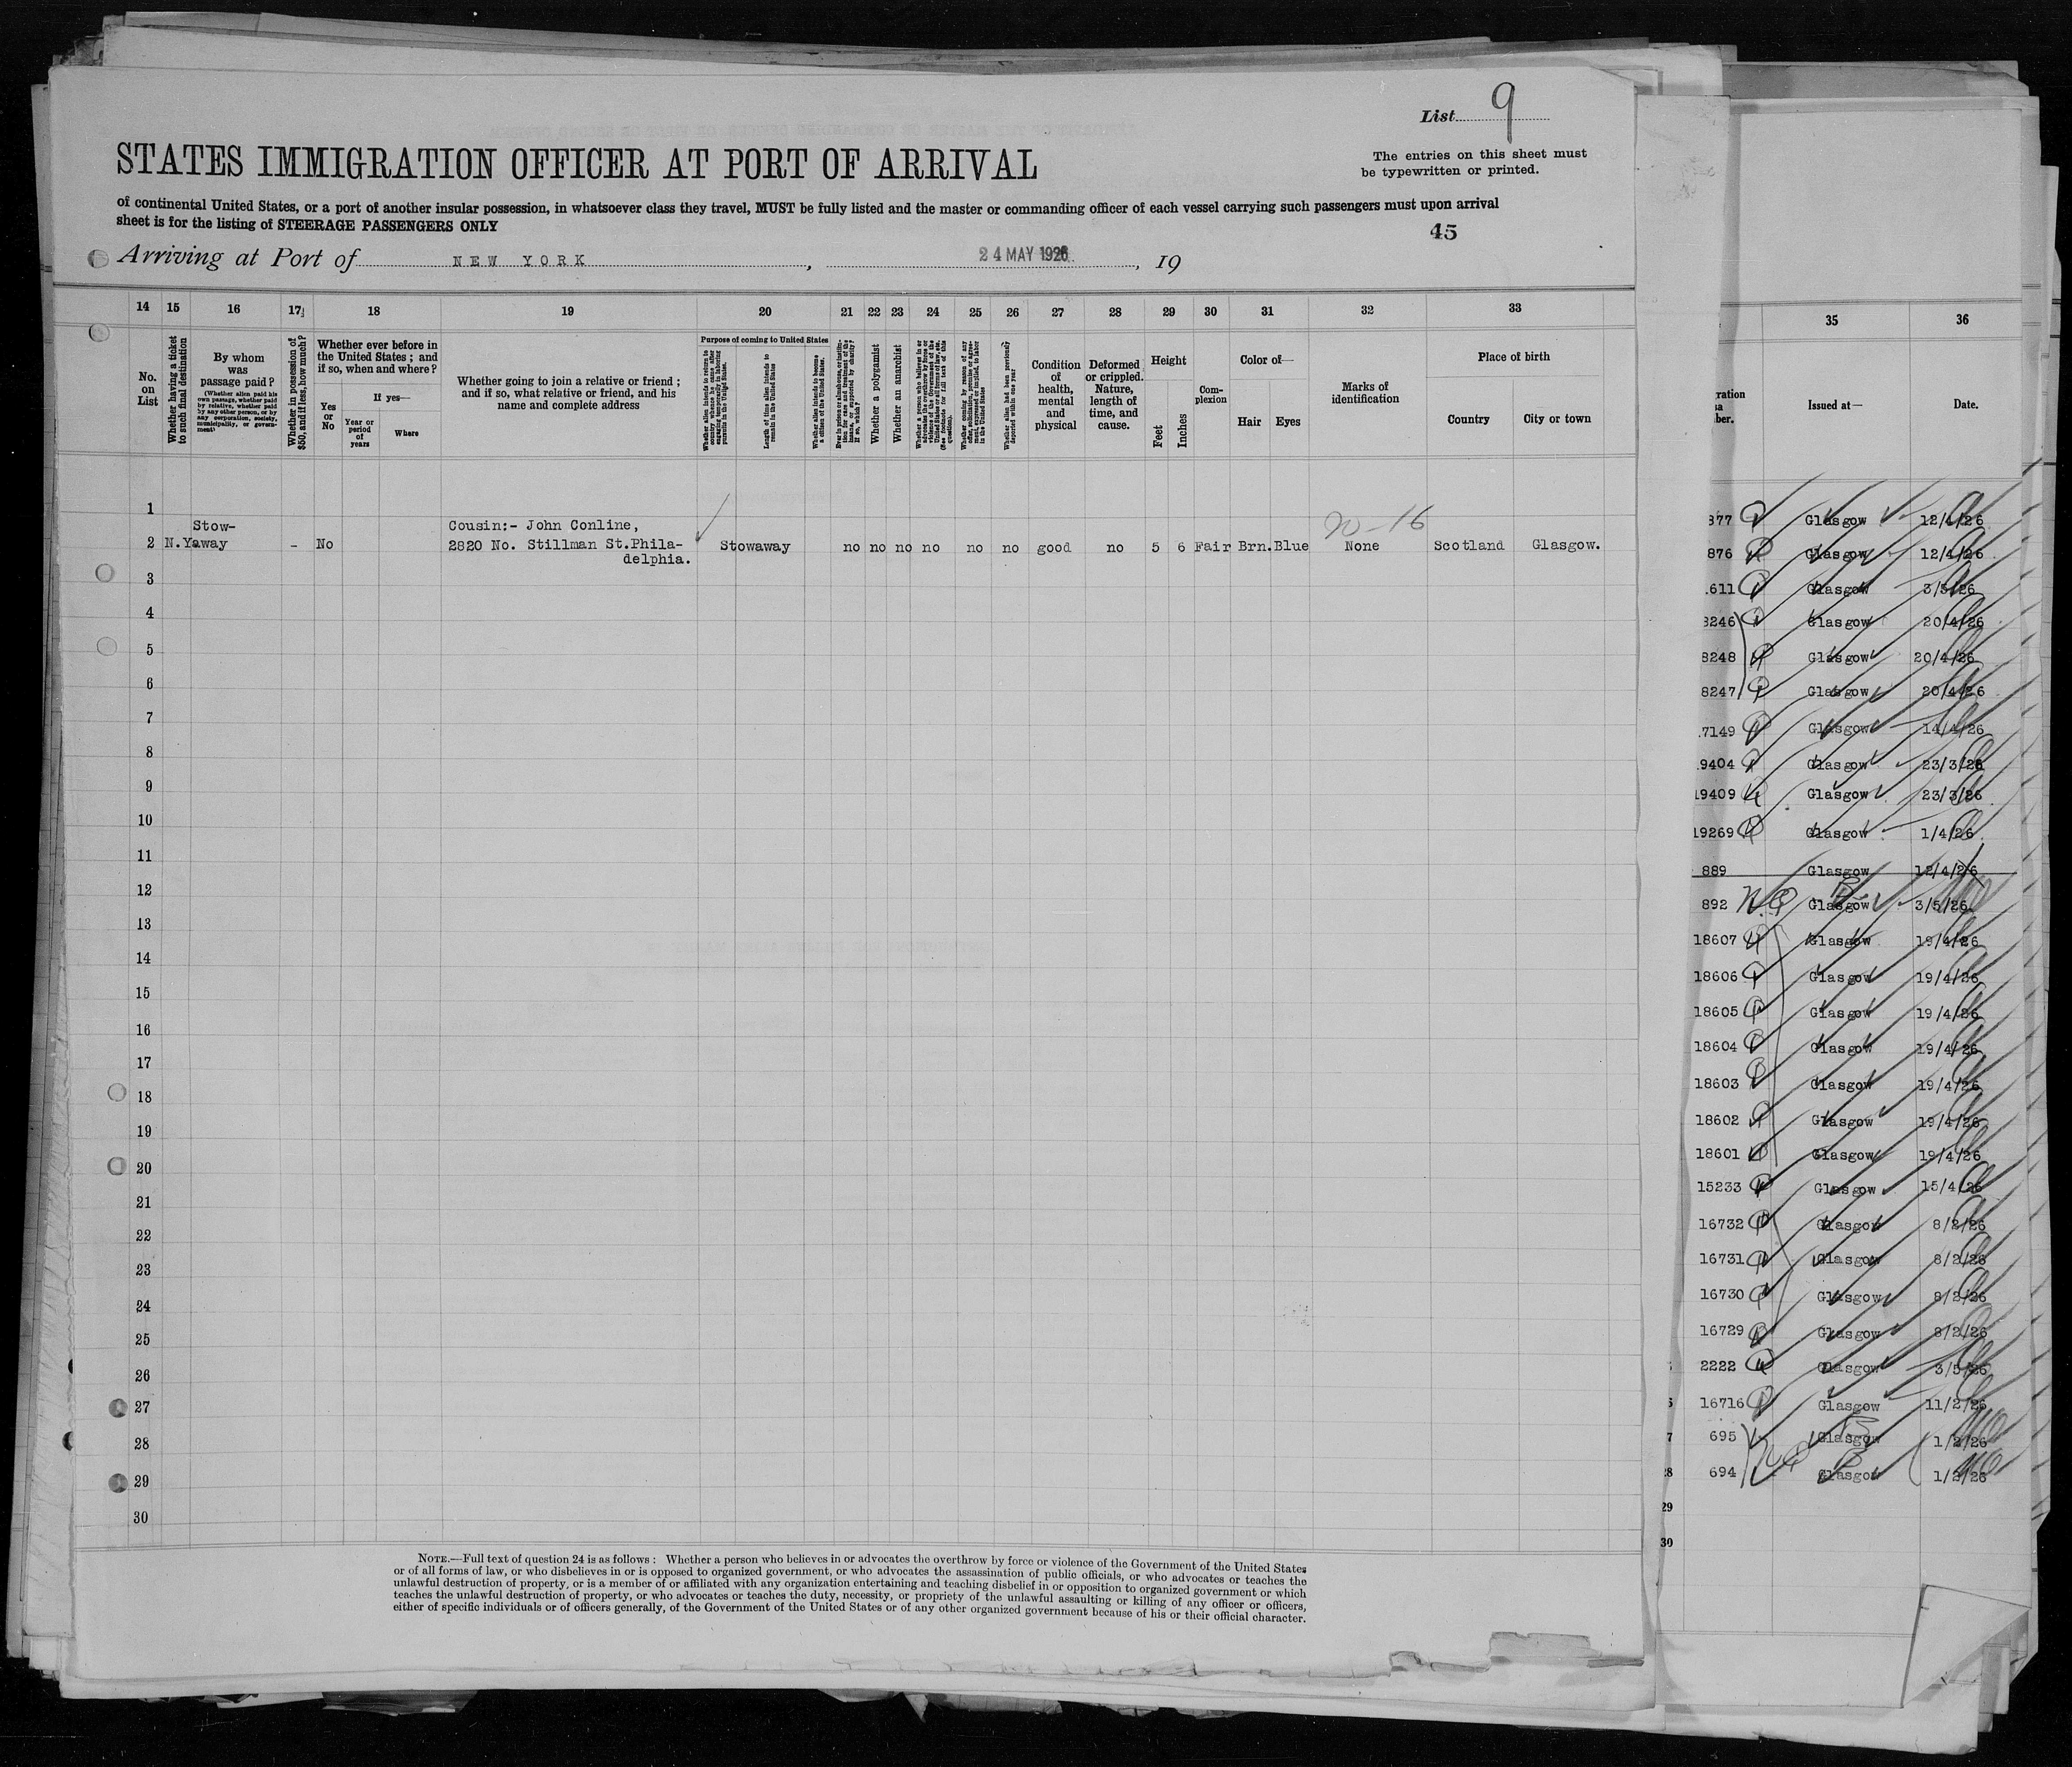 List 9
The entries on this sheet must
be typewritten or printed.
STATES IMMIGRATION OFFICER AT PORT OF ARRIVAL
of continental United States, or a port of another insular possession, in whatsoever class they travel, MUST be fully listed and the master or commanding officer of each vessel carrying such passengers must upon arrival
sheet is for the listing of STEERAGE PASSENGERS ONLY
45
Arriving at Port of NEW YORK, 24 MAY 1926, 19
14 15 16 17 18 19 20 21 22 23 24 25 26 27 28 29 30 31 32 33
No. on List
Whether having a ticket to such final destination
By whom was passage paid?
(Whether alien paid his own passage, whether paid by relative, whether paid by any other person, or by any corporation, society, municipality, or government)
Whether in possession of $50, and if less, how much?
Whether ever before in the United States; and if so, when and where?
Yes or No
If yes—
Year or period of years
Where
Whether going to join a relative or friend; and if so, what relative or friend, and his name and complete address
Purpose of coming to United States
Whether alien intends to return to country whence he came after engaging temporarily in laboring pursuits in the United States.
Length of time alien intends to remain in the United States
Whether alien intends to become a citizen of the United States.
Ever in prison or almshouse, or institution for care and treatment of the insane, or supported by charity? If so, which?
Whether a polygamist
Whether an anarchist
Whether a person who believes in or advocates the overthrow by force or violence of the Government of the United States or all forms of law, etc. (See footnote for full text of this question).
Whether coming by reason of any offer, solicitation, promise or agreement, expressed or implied, to labor in the United States
Whether alien had been previously deported within one year
Condition of health, mental and physical
Deformed or crippled. Nature, length of time, and cause.
Height
Feet
Inches
Complexion
Color of—
Hair
Eyes
Marks of identification
Place of birth
Country
City or town
1
Stow- Cousin:- John Conline, 20-16
2 N.Y. away - No 2820 No. Stillman St.Phila- Stowaway no no no no no no good no 5 6 Fair Brn. Blue None Scotland Glasgow.
delphia.
3
4
5
6
7
8
9
10
11
12
13
14
15
16
17
18
19
20
21
22
23
24
25
26
27
28
29
30
NOTE.—Full text of question 24 is as follows: Whether a person who believes in or advocates the overthrow by force or violence of the Government of the United States
or of all forms of law, or who disbelieves in or is opposed to organized government, or who advocates the assassination of public officials, or who advocates or teaches the
unlawful destruction of property, or is a member of or affiliated with any organization entertaining and teaching disbelief in or opposition to organized government or which
teaches the unlawful destruction of property, or who advocates or teaches the duty, necessity, or propriety of the unlawful assaulting or killing of any officer or officers,
either of specific individuals or of officers generally, of the Government of the United States or of any other organized government because of his or their official character.
35 36
Issued at— Date.
877 Glasgow 12/4/26
876 Glasgow 12/4/26
611 Glasgow 3/5/26
8246 Glasgow 20/4/26
8248 Glasgow 20/4/26
8247 Glasgow 20/4/26
7149 Glasgow 14/4/26
9404 Glasgow 23/3/26
19409 Glasgow 23/3/26
19269 Glasgow 1/4/26
889 Glasgow 12/4/26
892 Glasgow 3/5/26
18607 Glasgow 19/4/26
18606 Glasgow 19/4/26
18605 Glasgow 19/4/26
18604 Glasgow 19/4/26
18603 Glasgow 19/4/26
18602 Glasgow 19/4/26
18601 Glasgow 19/4/26
15233 Glasgow 15/4/26
16732 Glasgow 8/2/26
16731 Glasgow 8/2/26
16730 Glasgow 8/2/26
16729 Glasgow 8/2/26
2222 Glasgow 3/5/26
16716 Glasgow 11/2/26
695 Glasgow 1/2/26
28 694 Glasgow 1/2/26
29
30